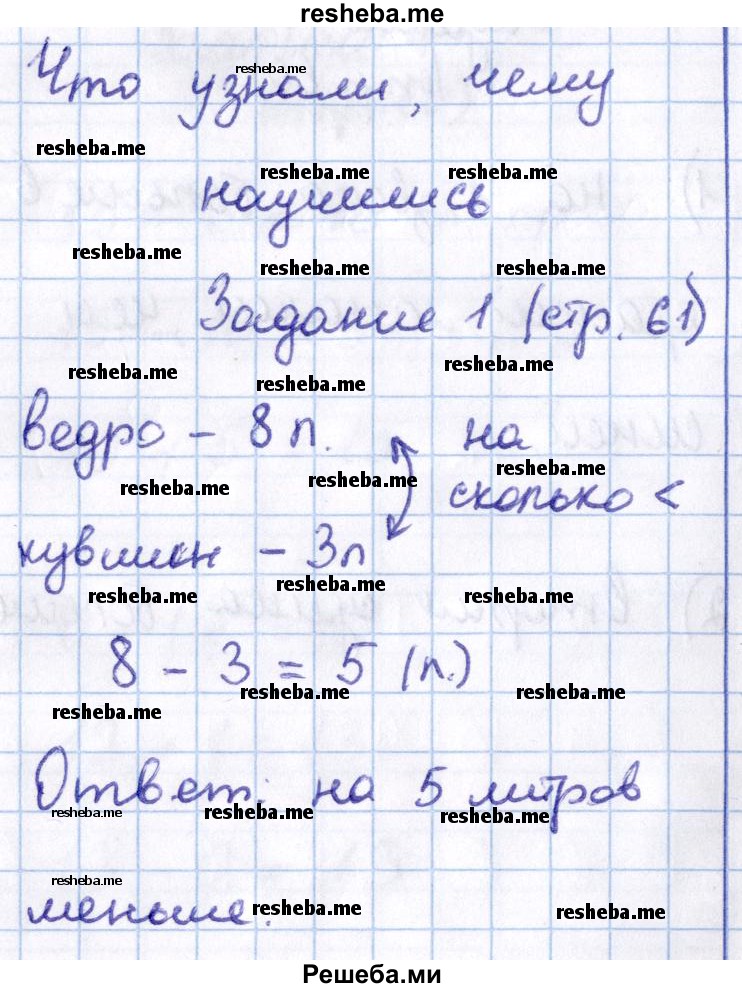 resheba.me
Что узнали, чему
resheba.me
resheba.me
resheba.me resheba.me
научились
resheba.me
resheba.me resheba.me
Задание 1 (стр. 61)
resheba.me resheba.me
resheba.me
ведро – 8 л. на
resheba.me
resheba.me resheba.me
сколько <
кувшин – 3л
resheba.me resheba.me resheba.me
8 – 3 = 5 (л.)
resheba.me resheba.me
resheba.me
Ответ: на 5 литров
resheba.me resheba.me resheba.me
resheba.me
меньше.
resheba.me resheba.me
Решеба.ми